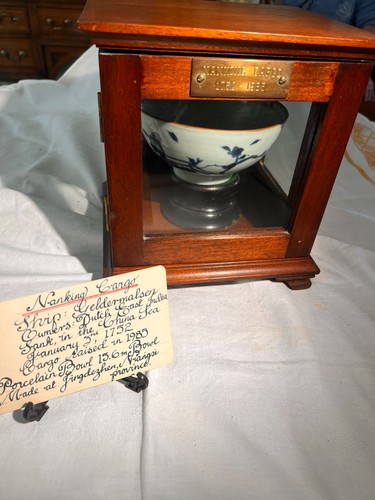 NANKING CARGO
1752 - 1985
Nanking Cargo
Ship: Geldermalsen
Owners: Dutch East India
Sank, in the China Sea
January 3, 1752
Cargo raised in 1985
Porcelain Bowl 15.6 mc Bowl
Made at Jingdezhen, Niangsi
province.